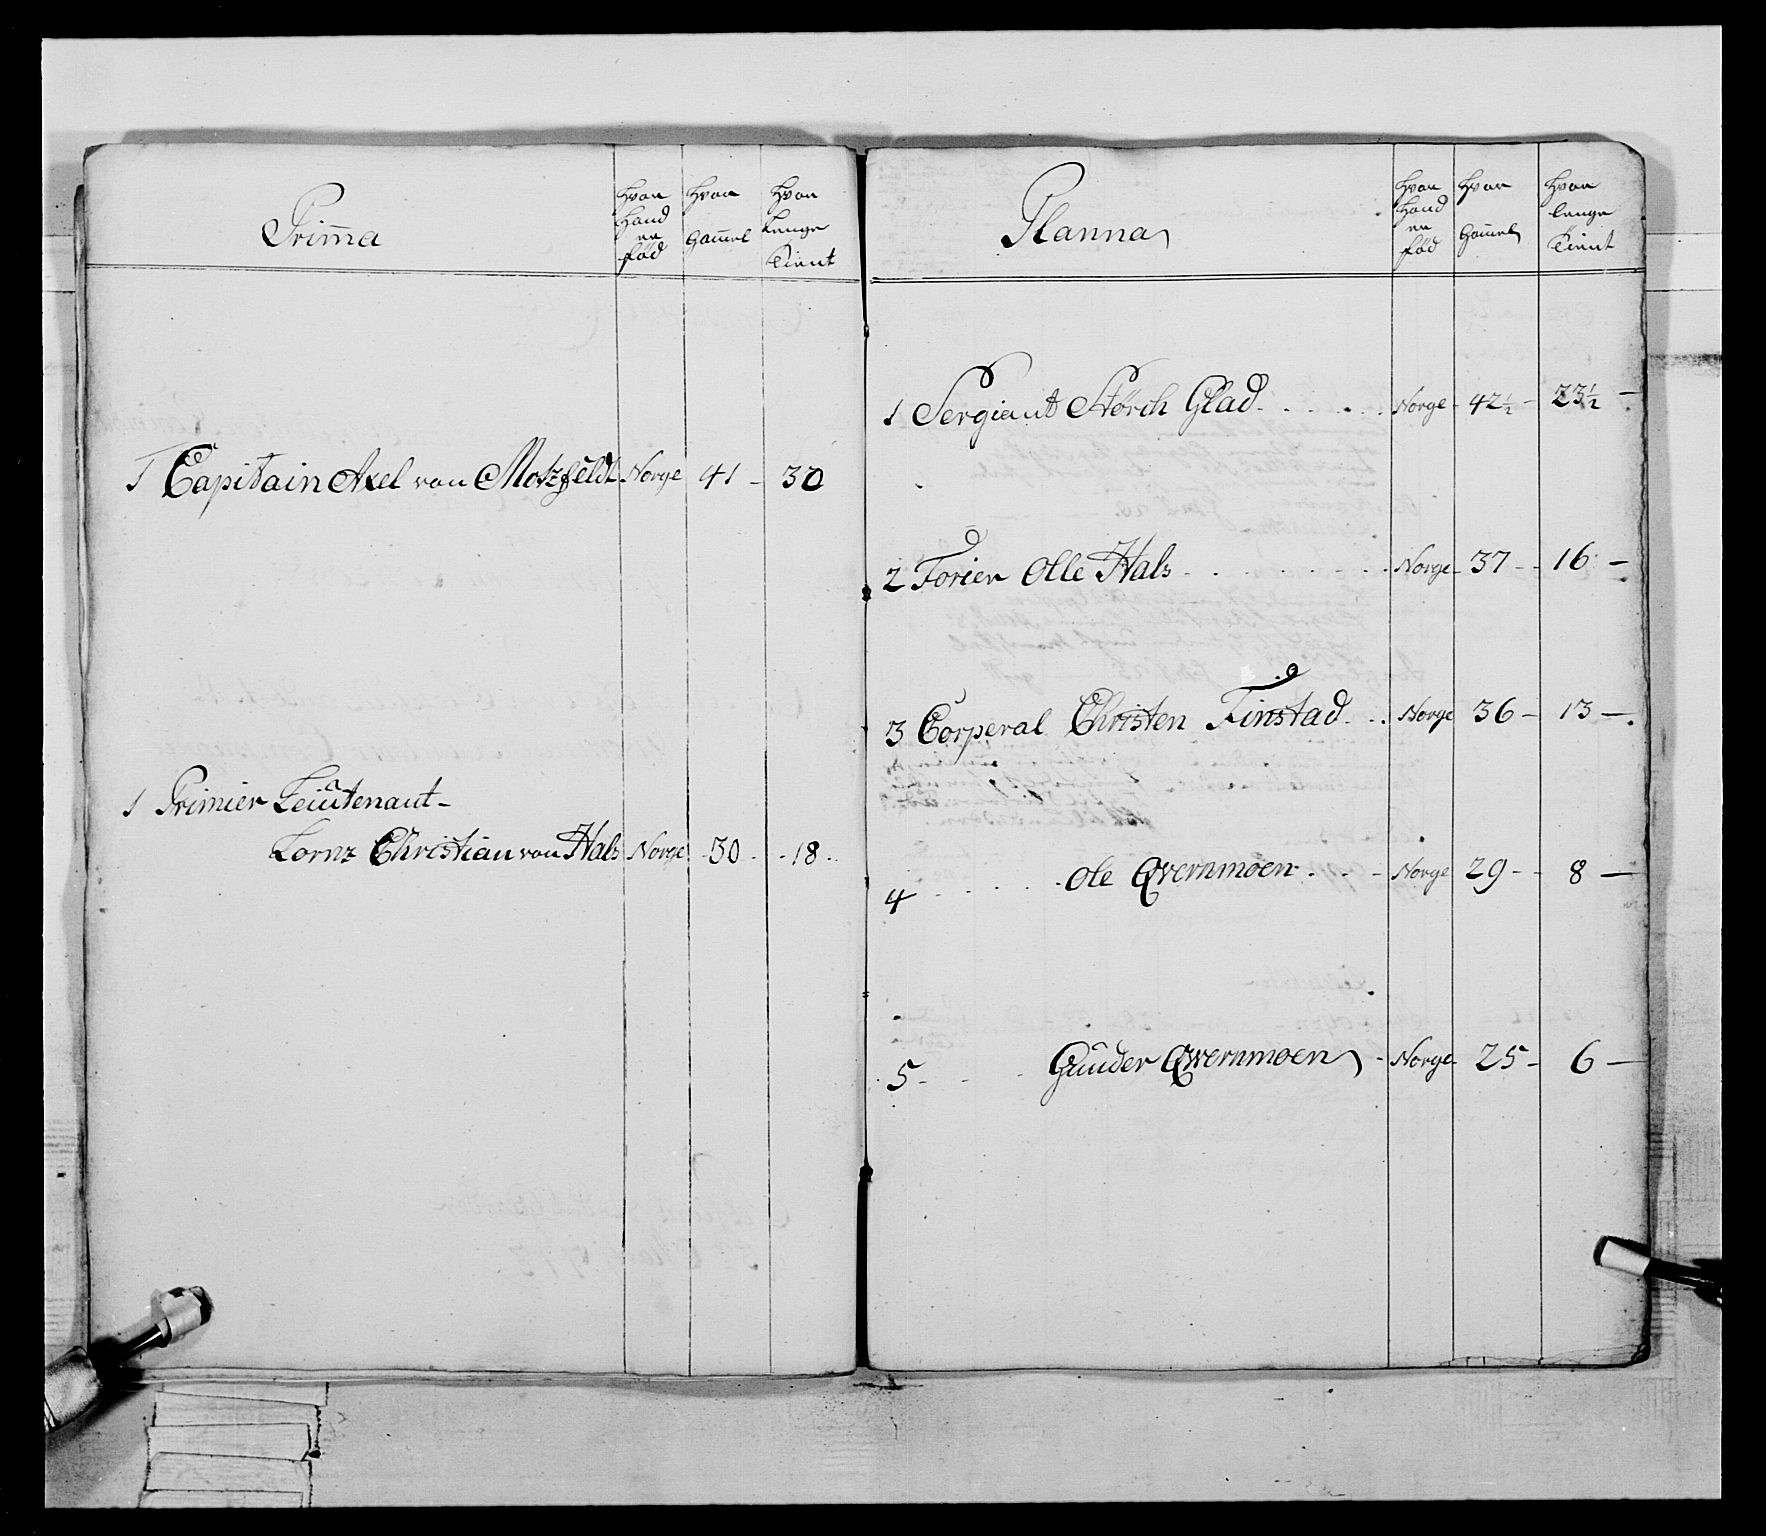 Prima
Hvor Hand er fød
Hvor Gamel
Hvor Lenge Tient
1 Capitain Axel von Motzfeldt Norge 41 - 30
1 Primier Leiutenant -
Lornz Christian von Hals Norge 30 - 18
Planna
Hvor Hand er fød
Hvor Gamel
Hvor lenge Tient
1 Sergiant Störch Glad . . . . . Norge - 42½ - 23½ -
2 Forier Olle Hals . . . . . . Norge - 37 - 16 -
3 Corperal Christen Finstad . . Norge 36 - 13 -
4 . . . . . Ole Qvernmoen . . - Norge 29 - 8 -
5 - - . Gunder Qvernmoen - Norge - 25 - 6 -